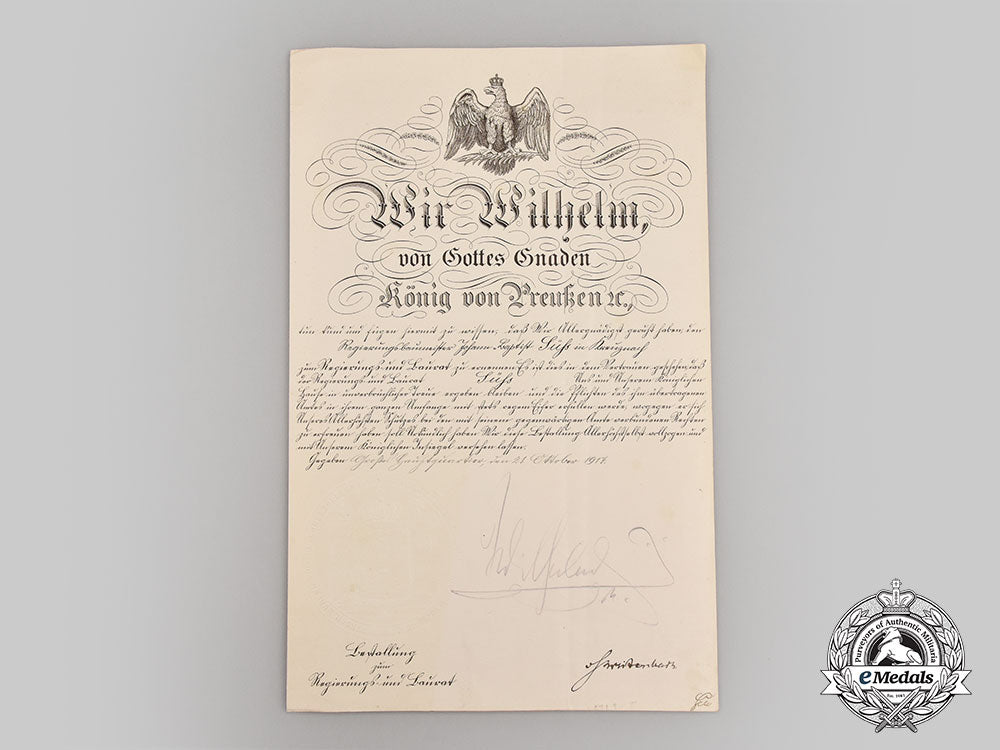 Wir Wilhelm,
von Gottes Gnaden
König von Preußen ꝛc.,
tun kund und fügen hiermit zu wissen, daß Wir Allergnädigst geruht haben, den
Regierungsbaumeister Johann Baptist Süß in Kreuznach
zum Regierungs- und Baurat zu ernennen. Es ist dies in dem Vertrauen geschehen, daß
der Regierungs- und Baurat Süß Uns und Unserem Königlichen
Hause in unverbrüchlicher Treue ergeben bleiben und die Pflichten des ihm übertragenen
Amtes in ihrem ganzen Umfange mit stets regem Eifer erfüllen werde, wogegen er sich
Unseres Allerhöchsten Schutzes bei den mit seinem gegenwärtigen Amte verbundenen Rechten
zu erfreuen haben soll. Urkundlich haben Wir diese Bestallung Allerhöchstselbst vollzogen und
mit Unserem Königlichen Insiegel versehen lassen.
Gegeben Großes Hauptquartier, den 21. Oktober 1917.
Wilhelm
Bestallung
zum
Regierungs- und Baurat
Breitenbach
Purveyors of Authentic Militaria
eMedals